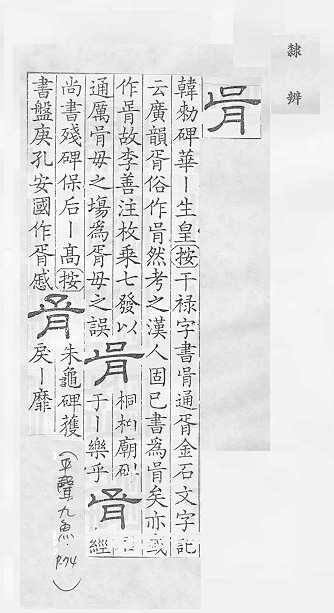 隸辨
𦙃
韓勑碑華丨生皇按干祿字書𦙃通胥金石文字記
云廣韻胥俗作𦙃然考之漢人固已書為𦙃矣亦或
作𦙃故李善注枚乗七發以
通厲𦙃毋之塲為胥毋之誤
𦙃
桐柏廟碑
于丨樂乎
𦙃
石
經
尚書殘碑保后丨髙按
書盤庚孔安國作胥慼
𦙃
朱龜碑獲
戾丨靡
(平聲九魚 P.74)